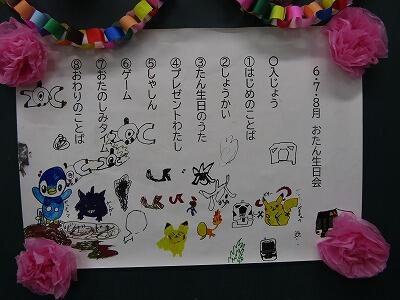 6・7・8月 おたん生日会
〇入じょう
①はじめのことば
②しょうかい
③たん生日のうた
④プレゼントわたし
⑤しゃしん
⑥ゲーム
⑦おたのしみタイム
⑧おわりのことば